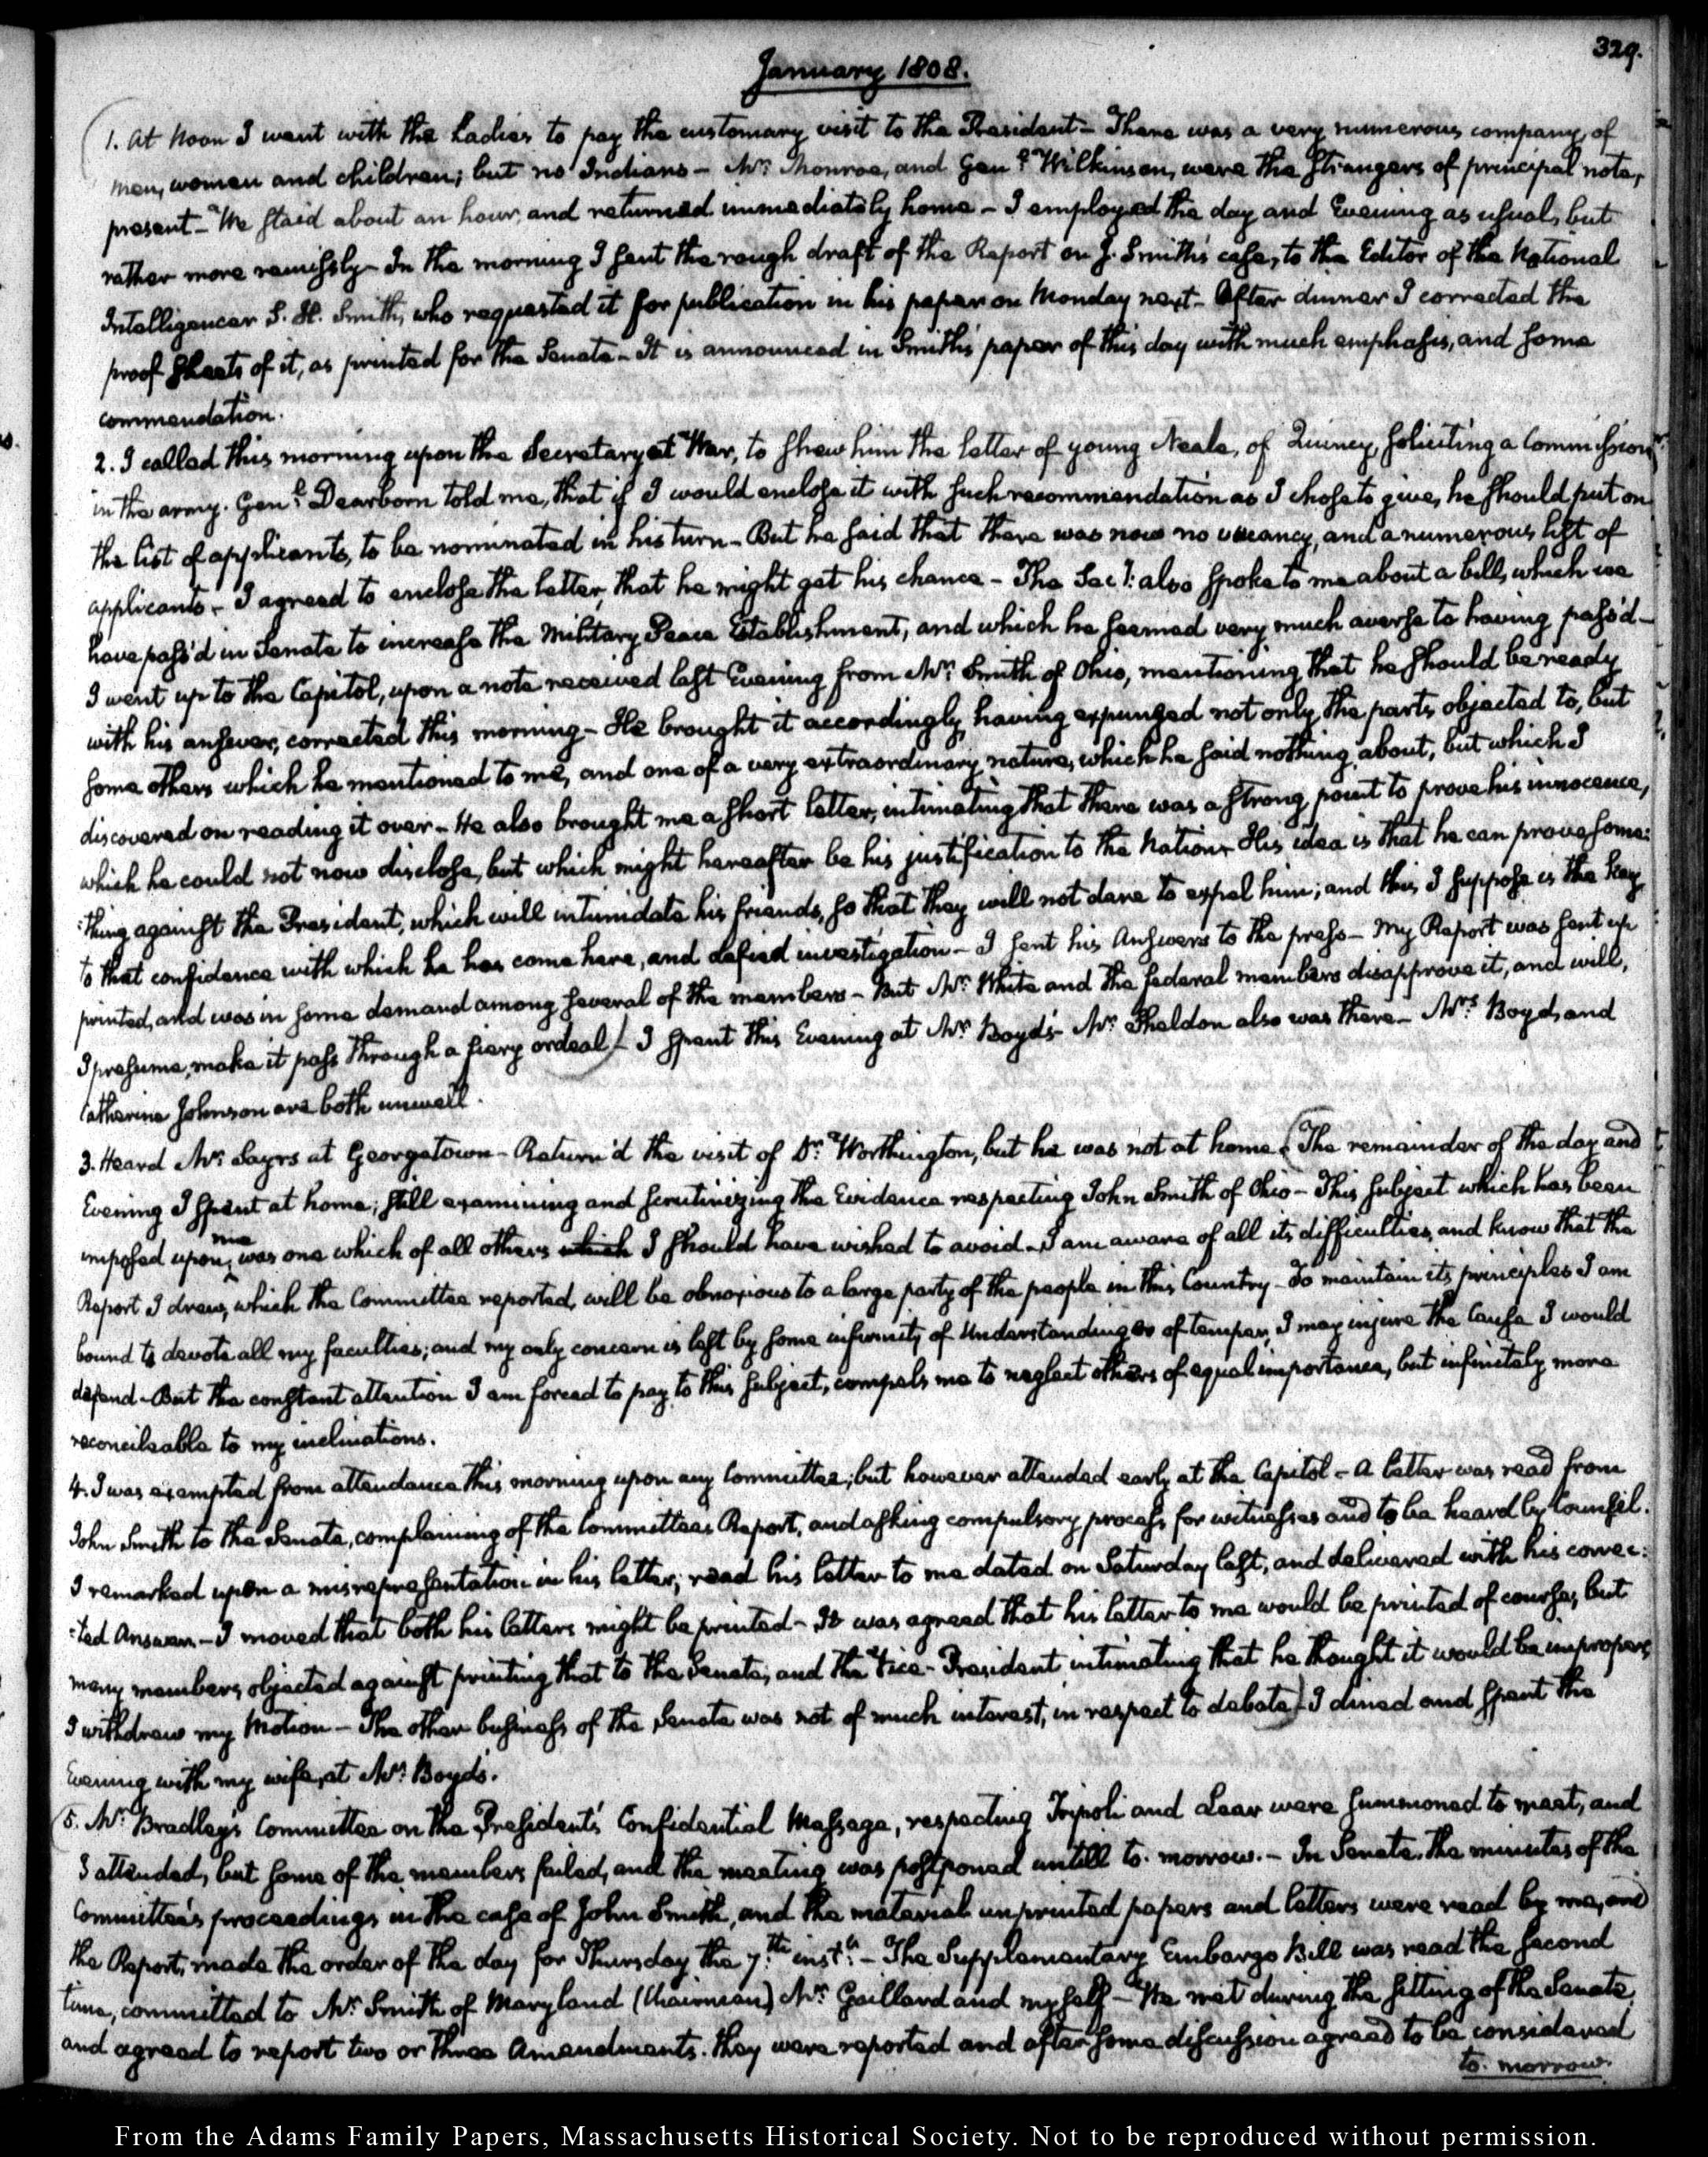 329.
January 1808.
1. At Noon I went with the Ladies to pay the customary visit to the President — There was a very numerous company, of
men, women and children; but no Indians — Mr: Monroe, and Genl: Wilkinson, were the Strangers of principal note,
present — We staid about an hour, and returned immediately home — I employed the day and Evening as usual, but
rather more remissly — In the morning I sent the rough draft of the Report on J. Smith's case, to the Editor of the National
Intelligencer S. H. Smith, who requested it for publication in his paper on Monday next — After dinner I corrected the
proof sheets of it, as printed for the Senate — It is announced in Smith's paper of this day with much emphasis, and some
commendation.
2. I called this morning upon the Secretary at War, to shew him the letter of young Neale, of Quincy, soliciting a Commission
in the army. Genl: Dearborn told me, that if I would enclose it with such recommendation as I chose to give, he should put on
the list of applicants, to be nominated in his turn — But he said that there was now no vacancy, and a numerous list of
applicants — I agreed to enclose the letter, that he might get his chance — The Secy: also spoke to me about a bill, which we
have pass'd in Senate to increase the Military Peace Establishment, and which he seemed very much averse to having pass'd —
I went up to the Capitol, upon a note received last Evening from Mr: Smith of Ohio, mentioning that he should be ready
with his answer, corrected this morning — He brought it accordingly, having expunged not only the parts objected to, but
some others which he mentioned to me, and one of a very extraordinary nature, which he said nothing about, but which I
discovered on reading it over — He also brought me a short letter, intimating that there was a strong point to prove his innocence,
which he could not now disclose, but which might hereafter be his justification to the Nation — His idea is that he can prove some:
:thing against the President, which will intimidate his friends, so that they will not dare to expel him; and this I suppose is the key
to that confidence with which he has come here, and defied investigation — I sent his Answers to the press — My Report was sent up
printed, and was in some demand among several of the members — But Mr: White and the federal members disapprove it, and will,
I presume, make it pass through a fiery ordeal) — I spent this Evening at Mr: Boyd's — Mr: Sheldon also was there — Mrs: Boyd, and
Catherine Johnson are both unwell.
3. Heard Mr: Sayrs at Georgetown — Return'd the visit of Dr: Worthington, but he was not at home — (The remainder of the day and
Evening I spent at home; still examining and scrutinizing the Evidence respecting John Smith of Ohio — This subject which has been
imposed upon me, was one which of all others which I should have wished to avoid — I am aware of all its difficulties, and know that the
Report I drew, which the Committee reported, will be obnoxious to a large party of the people in this Country — To maintain its principles I am
bound to devote all my faculties; and my only concern is lest by some infirmity of Understanding or of temper, I may injure the Cause I would
defend — But the constant attention I am forced to pay to this subject, compels me to neglect others of equal importance, but infinitely more
reconcileable to my inclinations.
4. I was exempted from attendance this morning upon any Committee; but however attended early at the Capitol — A letter was read from
John Smith to the Senate, complaining of the Committee's Report, and asking compulsory process for witnesses and to be heard by Counsel.
I remarked upon a misrepresentation in his letter; read his letter to me dated on Saturday last, and delivered with his correc:
:ted Answer — I moved that both his letters might be printed — It was agreed that his letter to me would be printed of course; but
many members objected against printing that to the Senate, and the Vice-President intimating that he thought it would be improper,
I withdrew my Motion — The other business of the Senate was not of much interest, in respect to debate) — I dined and spent the
Evening with my wife, at Mr: Boyd's.
(5. Mr: Bradley's Committee on the President's Confidential Message, respecting Tripoli and Lear were summoned to meet, and
I attended, but some of the members failed, and the meeting was postponed untill to-morrow. — In Senate. The minutes of the
Committee's proceedings in the case of John Smith, and the material unprinted papers and letters were read by me, and
the Report, made the order of the day for Thursday the 7th: instt: — The Supplementary Embargo Bill was read the second
time, committed to Mr: Smith of Maryland (Chairman) Mr: Gaillard and myself — We met during the sitting of the Senate,
and agreed to report two or three Amendments. They were reported and after some discussion agreed to be considered
to-morrow.
From the Adams Family Papers, Massachusetts Historical Society. Not to be reproduced without permission.